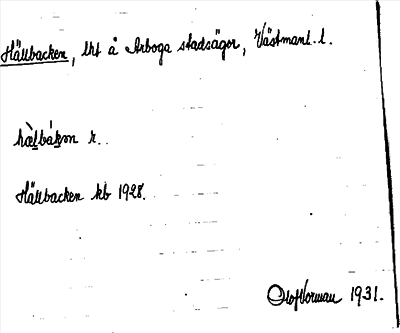 Hällbacken, lht å Arboga stadsägor, Västmanl. l.
hälbákən r.
Hällbacken kb 1928.
Olof Vorman 1931.